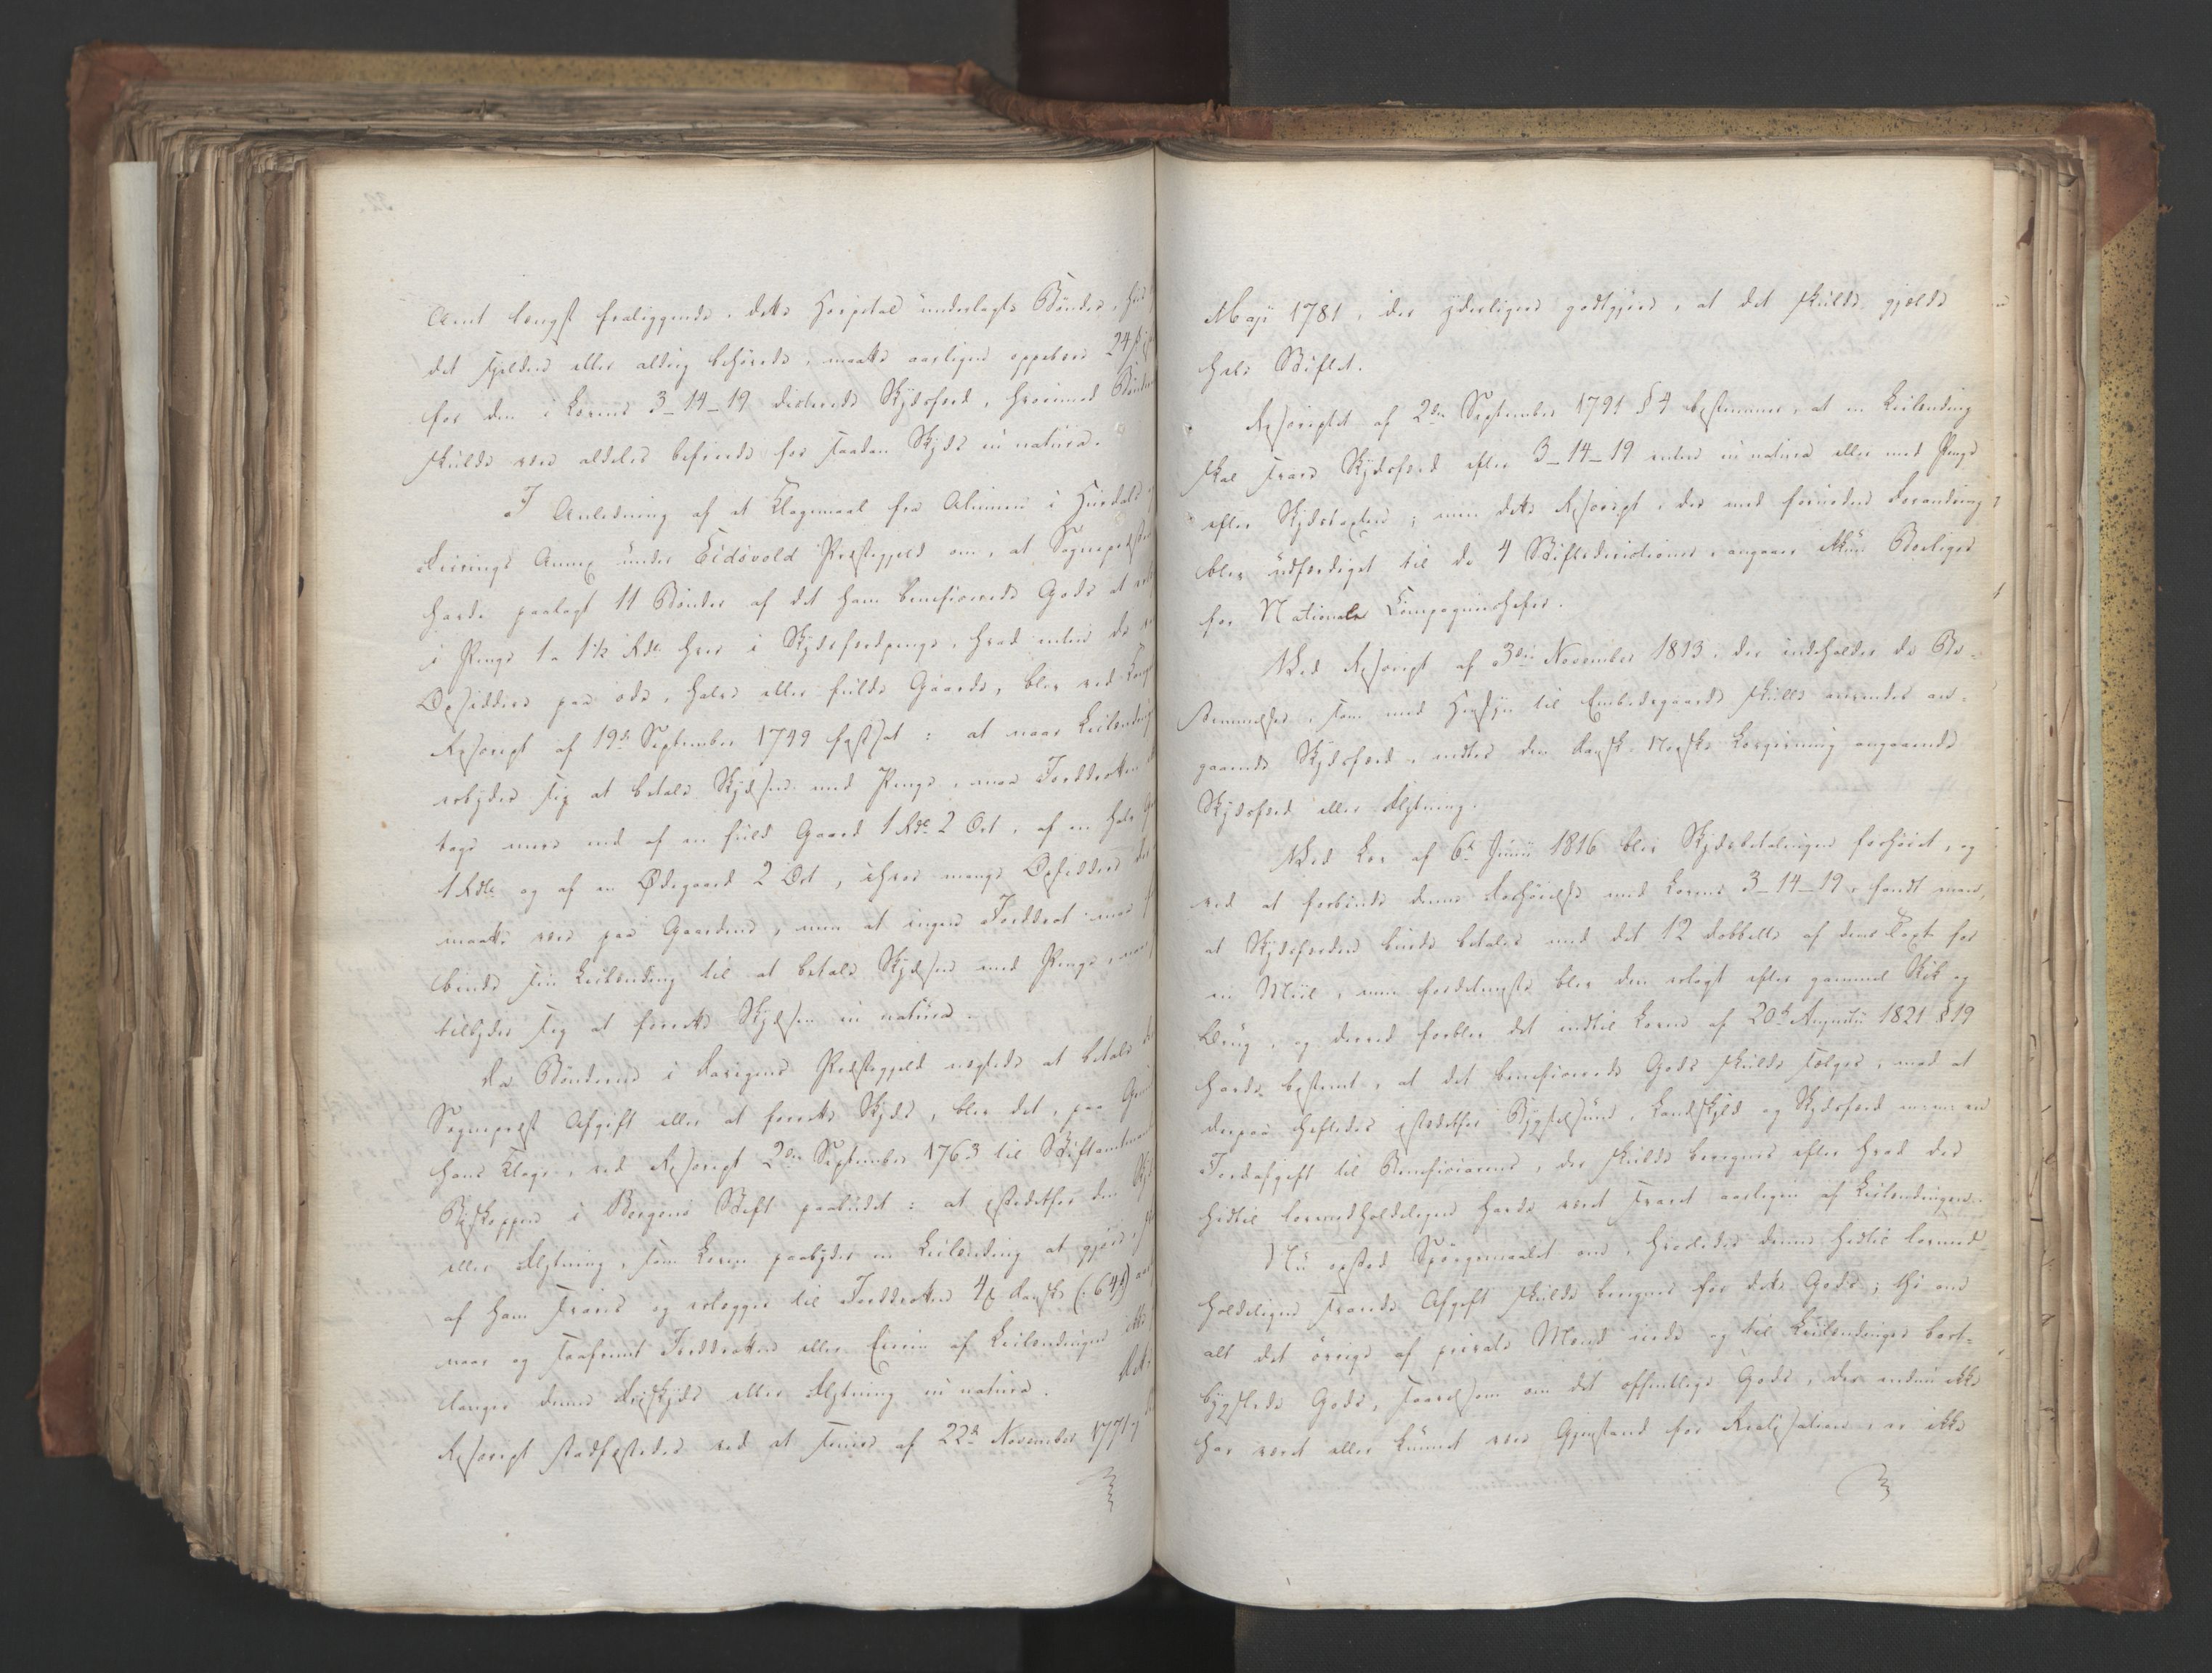 Amt længst fraliggende, dette Hospital underlagte Bønder, hvis
det sjelden eller aldrig behøvede, maatte aarligen oppebære 24 s
for den i Lovens 3-14-19 dicterede Skydsfærd, hvorimod Bønderne
skulde være aldeles befriede for saadan Skyds in natura.
I Anledning af et Klagemaal fra Almuen i Hurdals
Feirings Annex under Eidsvold Præstegjeld om, at Sognepræsten
havde paalagt 11 Bønder af det ham beneficerede Gods at
i Penge 1 a 1½ Rdlr hver i Skydsfærdpenge, hvad enten de
Opsiddere paa øde, halve eller fulde Gaarde, blev ved
Rescript af 19de September 1749 fastsat: at naar Leilendingen
erbyder sig at betale Skydsen med Penge, maa Jorddrotten
tage mere end af en fuld Gaard 1 Rdlr 2 Ort, af en halv
1 Rdlr og af en Ødegaard 2 Ort, ihvor mange Opsiddere der
maatte være paa Gaarden, men at ingen Jorddrot maa
binde sin Leilending til at betale Skydsen med Penge, naar
tilbyder sig at forrette Skydsen in natura.
Da Bønderne i Davigens Præstegjeld negtede at betale
Sognepræst Afgift eller at forrette Skyds, blev det, paa
hans Klage, ved Rescript 2den September 1763 til Stiftamtmand
Biskoppen i Bergens Stift paabudet: at istedetfor den
eller Flytning, som Loven paabyder en Leilending at gjøre,
af ham svares og erlægges til Jorddrotten 4 danske (: 64 s)
naar og saafremt Jorddrotten eller Eieren af Leilendingen ikke
langer denne Friskyds eller Flytning in natura. Dette
Rescript stadfæstedes ved et senere af 22de November 1771,
Maji 1781, der yderligere godtgjøre, at det skulde gjelde
hele Stiftet.
Rescriptet af 2den September 1791 § 4 bestemmer, at en Leilending
skal svare Skydsfærd efter 3-14-19 enten in natura eller med Penge
efter Skydstaxten; men dette Rescript, der med fornøden Forandring
blev udfærdiget til de 4 Stiftsdirectioner, angaaer kun Boeliger
for Nationale Compagniechefer.
Med Rescript af 3die November 1813, der indeholder de Be-
stemmelser, som med Hensyn til Embedsgaarde skulle anvendes an-
gaaende Skydsfærd, endtes den dansk-Norske Lovgivning angaaende
Skydsfærd eller Flytning.
Ved Lov af 6te Junii 1816 blev Skydsbetalingen forhøiet, og
ved at forbinde denne Forhøielse med Lovens 3-14-19, fandt man,
at Skydsfærden burde betales med det 12 dobbelte af dens Taxt for
en Miil, men fordetmeste blev den erlagt efter gammel Skik og
Brug, og derved forblev det indtil Loven af 20de Augusti 1821 § 19
havde bestemt, at det beneficerede Gods skulde sælges, mod at
derpaa heftedes istedetfor Bygselsum, Landskyld og Skydsfærd m: m: en
Jordafgift til Beneficiarene, der skulde beregnes efter hvad der
hidtil lovmedholdeligen havde været svaret aarligen af Leilendingen.
Nu opstod Spørgsmaalet om, hvorledes denne hidtil lovmed-
holdeligen svarede Afgift skulde beregnes for dette Gods; thi om
alt det øvrige af private Mænd eiede og til Leilendinger bort-
bygslede Gods, saavelsom om det offentlige Gods, der endnu ikke
har været eller kunnet være Gjenstand for Realisation, er ikke